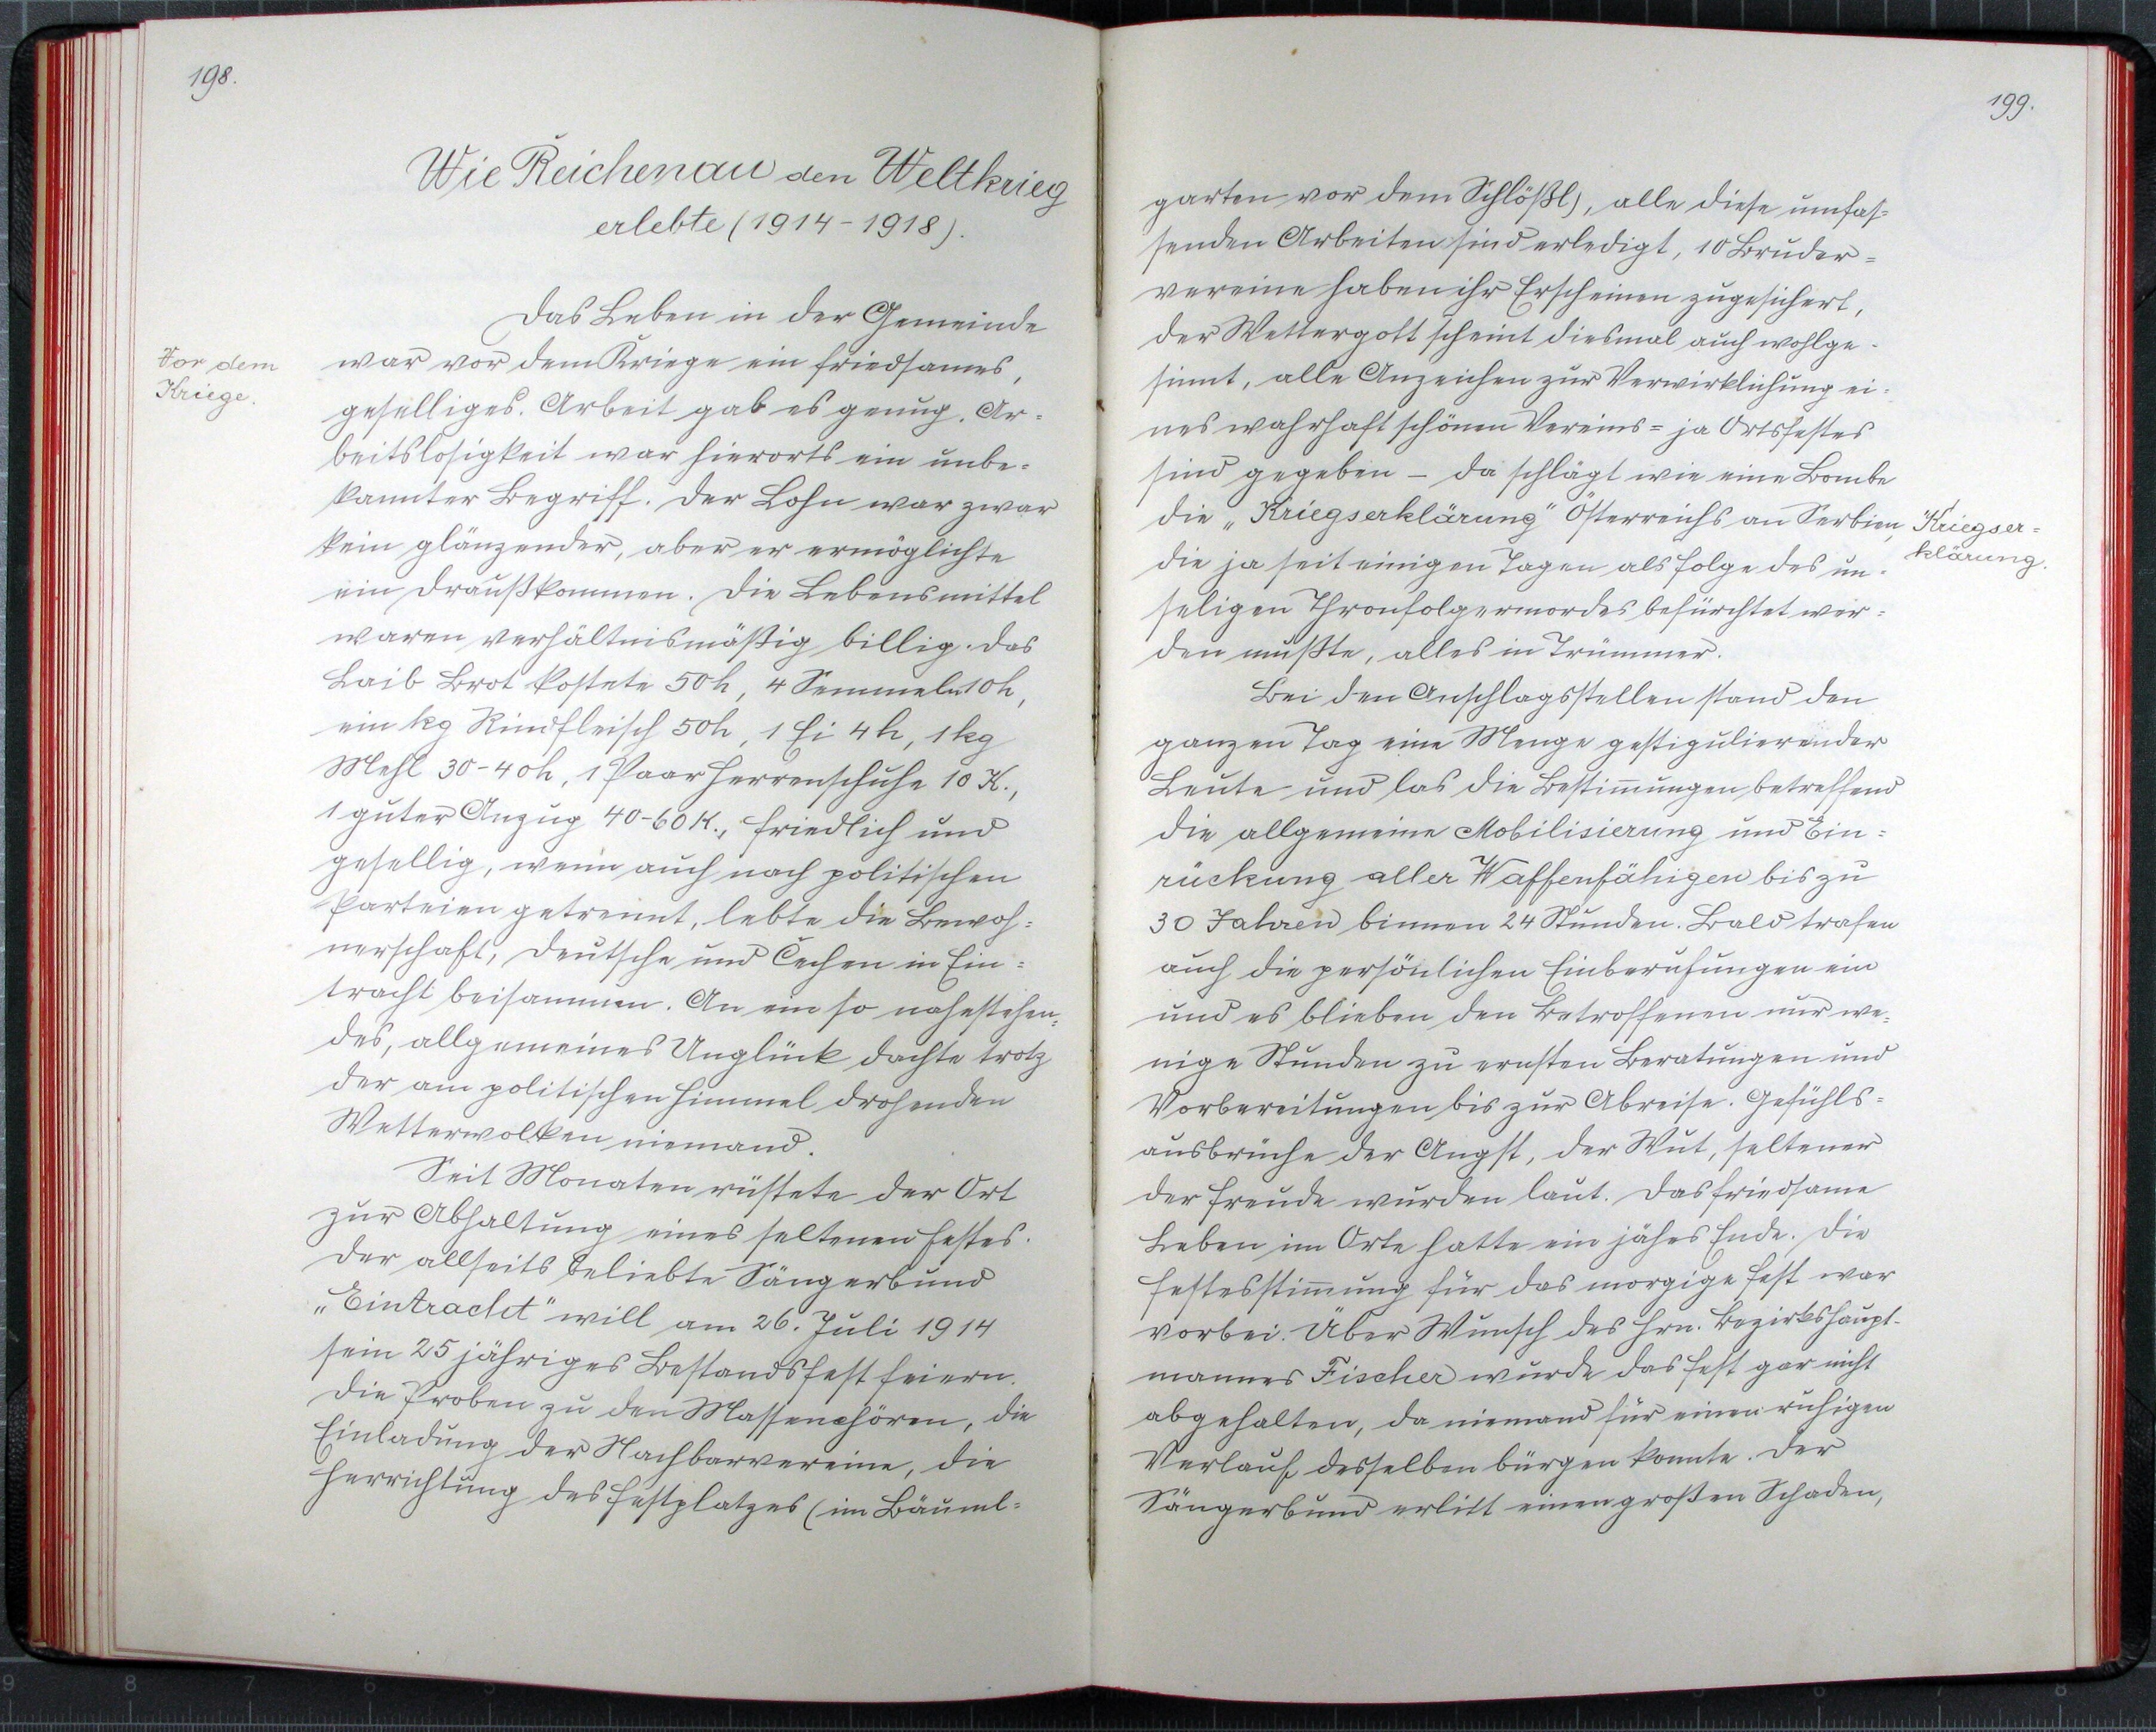 198.
Wie Reichenau den Weltkrieg
erlebte (1914-1918).
Vor dem
Kriege.
Das Leben in der Gemeinde
war vor dem Kriege ein friedsames,
geselliges. Arbeit gab es genug. Ar-
beitslosigkeit war hierorts ein unbe-
kannter Begriff. Der Lohn war zwar
kein glänzender, aber er ermöglichte
ein Drauskommen. Die Lebensmittel
waren verhältnismäßig billig. Das
Laib Brot kostete 50h, 4 Semmeln 10h,
ein kg Rindfleisch 50h, 1 Ei 4h, 1kg
Mehl 30-40h, 1 Paar Herrenschuhe 10 K.,
1 guter Anzug 40-60 K., friedlich und
gesellig, wenn auch nach politischen
Parteien getrennt, lebte die Bewoh-
nerschaft, Deutsche und Čechen in Ein-
tracht beisammen. An ein so nahestehen-
des, allgemeines Unglück dachte trotz
der am politischen Himmel drohenden
Wetterwolken niemand.
Seit Monaten rüstete der Ort
zur Abhaltung eines seltenen Festes.
Der allseits beliebte Sängerbund
„Eintracht" will am 26. Juli 1914
sein 25 jähriges Bestandsfest feiern.
Die Proben zu den Massenchören, die
Einladung der Nachbarvereine, die
Herrichtung des Festplatzes (im Bäuml-
199.
garten vor dem Schlößl), alle diese umfas-
senden Arbeiten sind erledigt, 10 Bruder-
vereine haben ihr Erscheinen zugesichert,
der Wettergott scheint diesmal auch wohlge-
sinnt, alle Anzeichen zur Verwirklichung ei-
nes wahrhaft schönen Vereins- ja Ortsfestes
sind gegeben – da schlägt wie eine Bombe
die „Kriegserklärung" Österreichs an Serbien,
Kriegser-
klärung.
die ja seit einigen Tagen als Folge des un-
seligen Thronfolgermordes befürchtet wer-
den mußte, alles in Trümmer.
Bei den Anschlagsstellen stand den
ganzen Tag eine Menge gestigulierender
Leute und las die Bestim̅ungen betreffend
die allgemeine Mobilisierung und Ein-
rückung aller Waffenfähigen bis zu
30 Jahren binnen 24 Stunden. Bald trafen
auch die persönlichen Einberufungen ein
und es blieben den Betroffenen nur we-
nige Stunden zu ernsten Beratungen und
Vorbereitungen bis zur Abreise. Gefühls-
ausbrüche der Angst, der Wut, seltener
der Freude wurden laut. Das friedsame
Leben im Orte hatte ein jähes Ende. Die
Festesstim̅ung für das morgige Fest war
vorbei. Über Wunsch des Hrn. Bezirkshaupt-
mannes Fischer wurde das Fest gar nicht
abgehalten, da niemand für einen ruhigen
Verlauf desselben bürgen konnte. Der
Sängerbund erlitt einen großen Schaden,
9 8 7 6 5
5 6 7 8